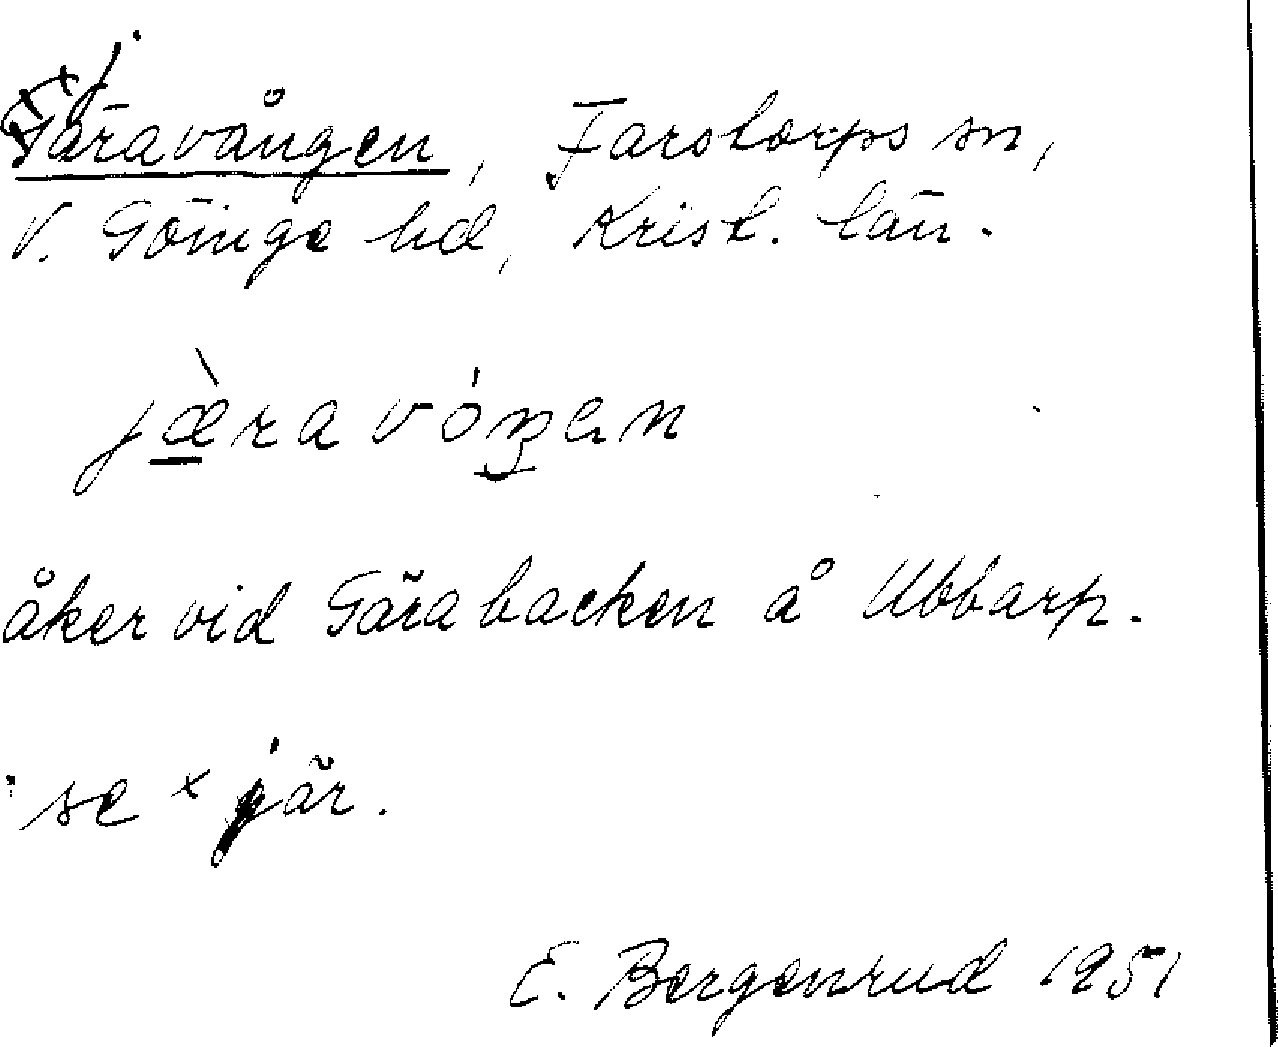 Järavången, Farstorps sn,
V. Göinge hd, Krist. län.
jæ̀ravóŋen
åker vid Gärabacken å Ubbarp.
se × jär.
E. Bergenrud 1951